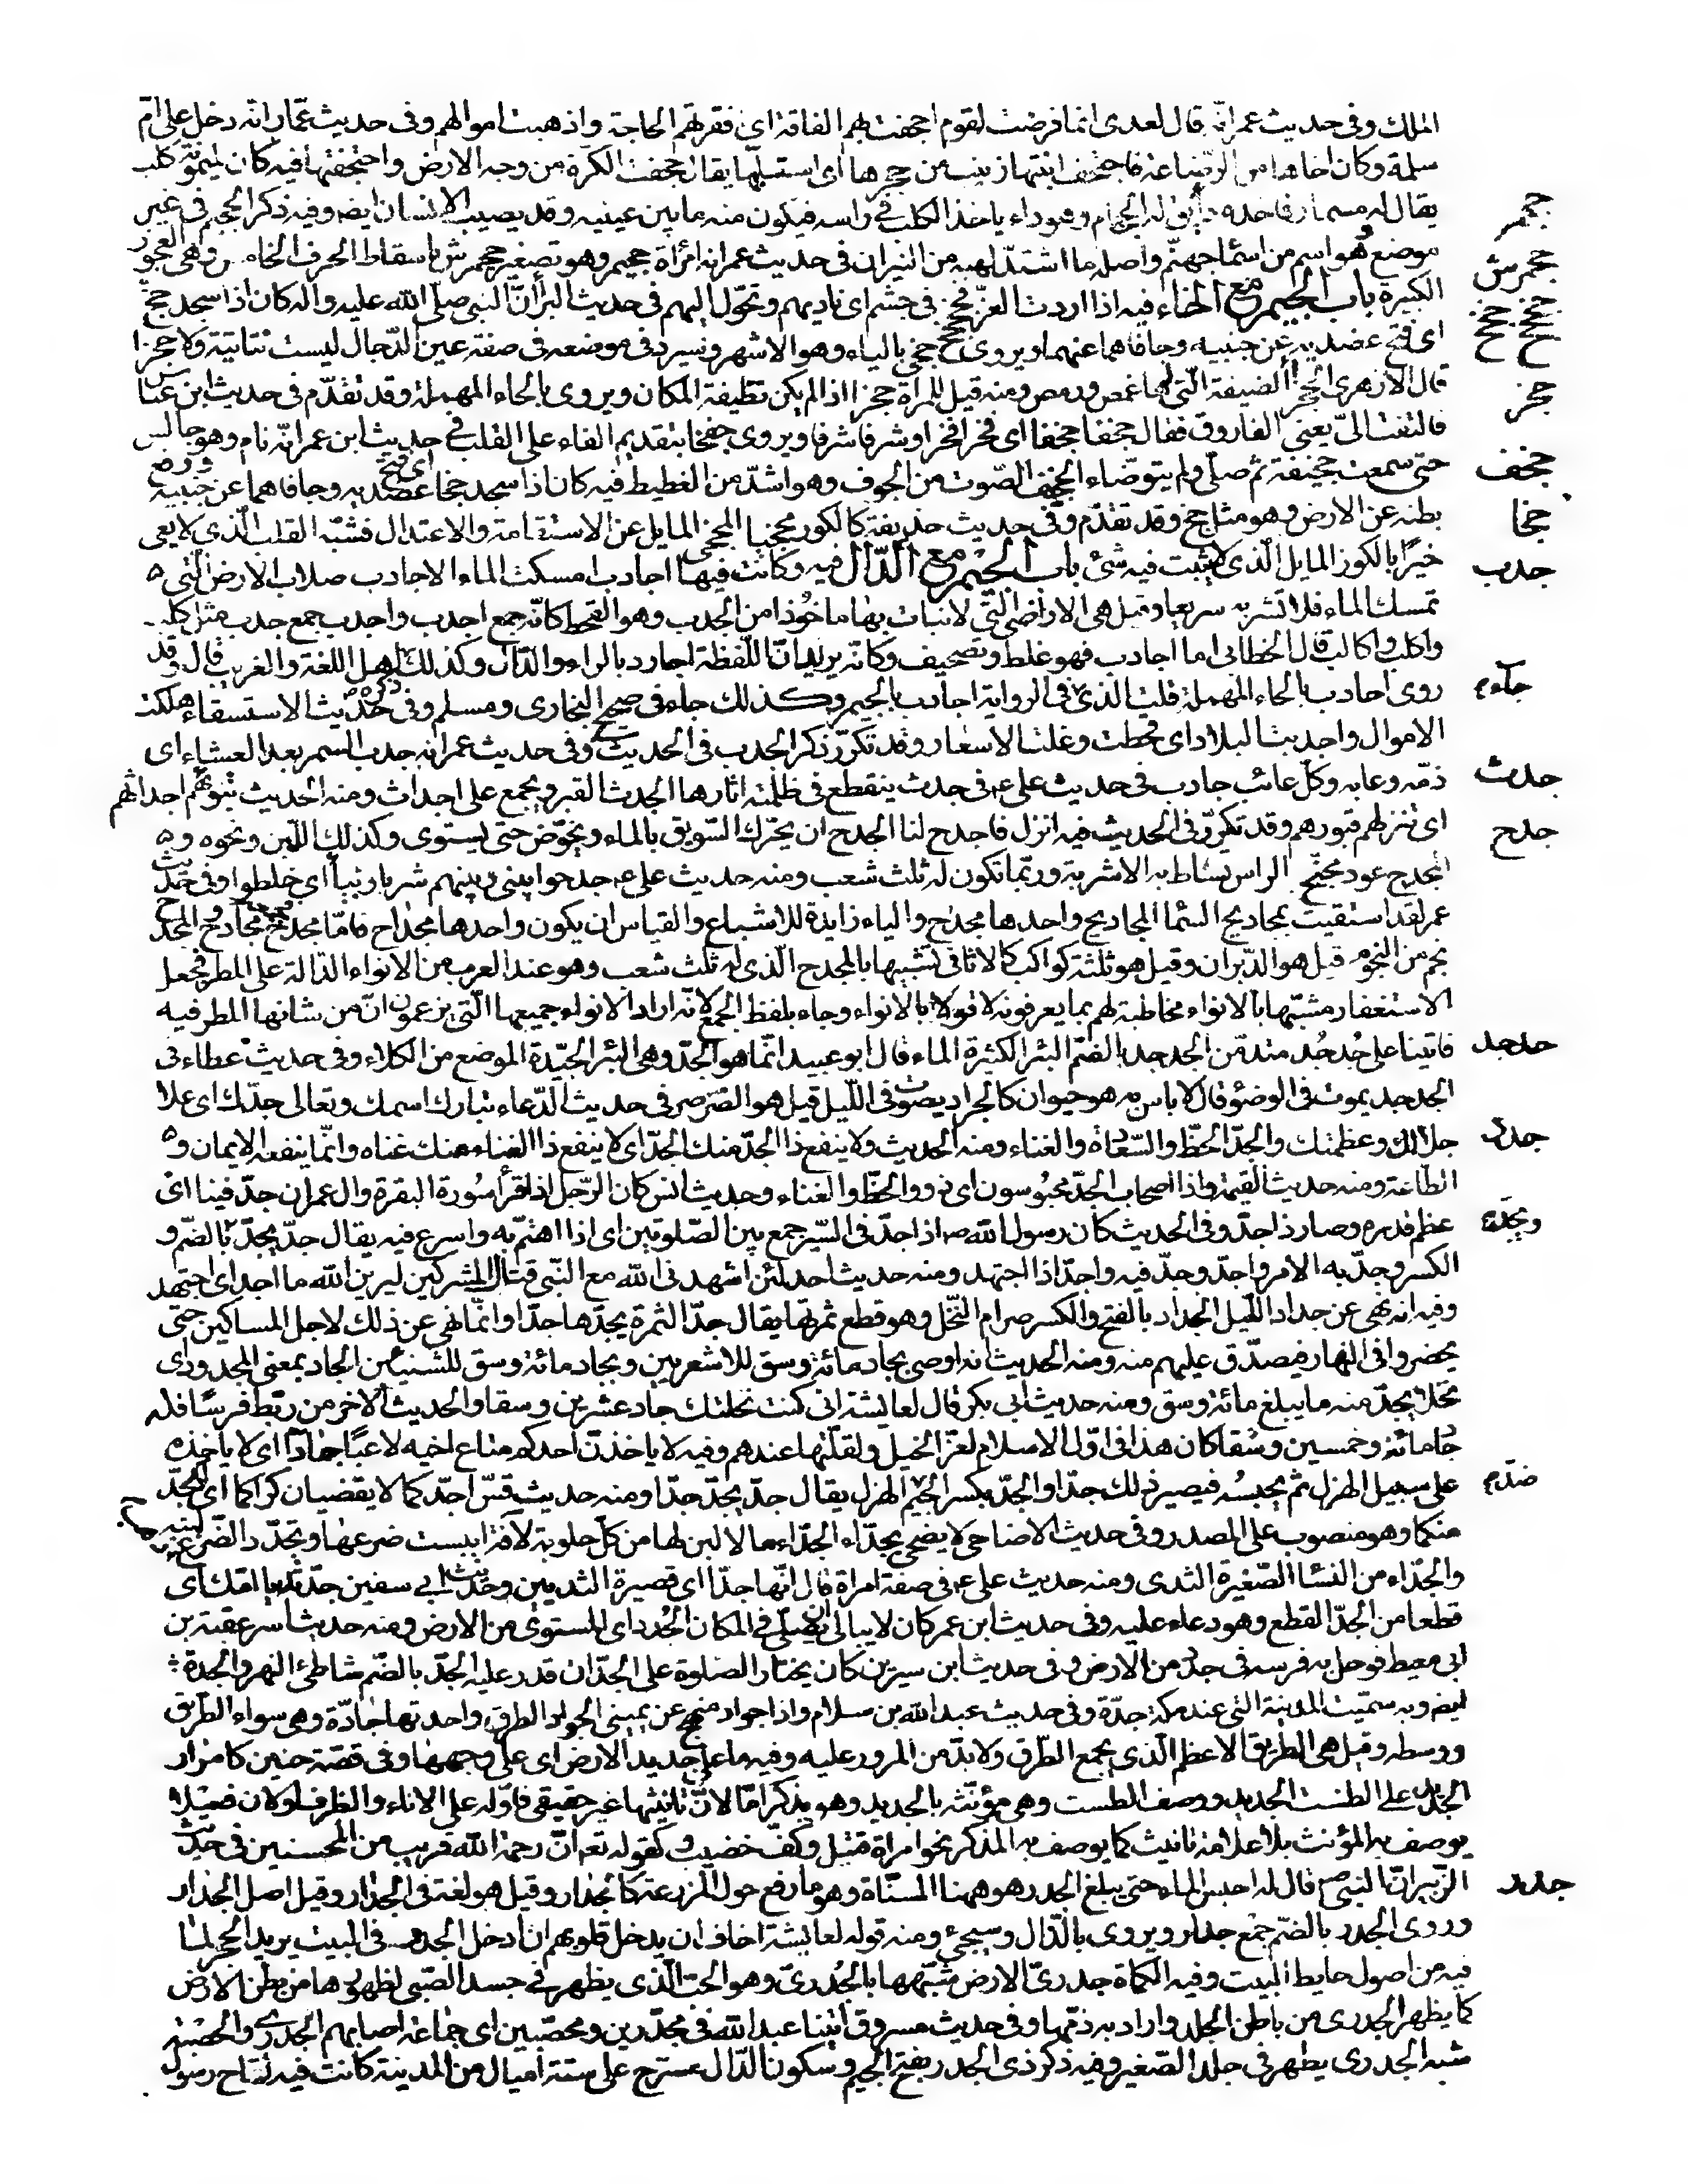 الملك وفى حديث عمر انّه قال لعدى انما فرضت لقوم اجحفت بهم الفاقة اى فقرتهم الحاجة واذهبت اموالهم وفى حديث عمّار انه دخل على امّ
سلمة وكان اخاها من الرّضاعة فاجتحف ابنتها زينب من حجرها اى استلبها يقال جحفت الكرة من وجه الارض واجتحفتها فيه كان لميمونة كلب
يقال له مسمار فاخذه داء يق له الجحام وهو داء ياخذ الكلب فى راسه فيكون منه ما بين عينيه وقد يصيب الانسان ايضا وفيه ذكر الجحيم فى غير
جحمر
موضع وهو اسم من اسماء جهنّم واصله ما اشتدّ لهبه من النيران فى حديث عمر انه امرأة جحيمر وهو تصغير جحمرش باسقاط الحرف الخامس وهى العجوز
جحمرش
الكبيرة باب الجيم مع الخاء فيه اذا اردت العزّ فجخجخ فى جشم اى ناديهم وتحوّل اليهم فى حديث البرا انّ النبى صلى الله عليه واله كان اذا سجد جخّ
جخجخ جخخ
اى فتح عضديه عن جنبيه وجافاهما عنهما ويروى جخى بالياء وهو الاشهر وسيرد فى موضعه فى صفة عين الدّجال ليست بناتية ولا جخرا
قال الازهرى الجخرا الضيقة الّتى لها غمص ورمص ومنه قيل للمراة جخرا اذا لم يكن نظيفة المكان ويروى بالحاء المهملة وقد تقدّم فى حديث ابن عباس
جخر
فالتفت الىّ يعنى الفاروق فقال جخفا جخفا اى فخرا فخرا وشرفا شرفا ويروى جفخا بتقديم الفاء على القلب فى حديث ابن عمر انّه نام وهو جالس
حتى سمعت جخيفه ثم صلّى ولم يتوضّاء الجخيف الصّوت من الجوف وهو اشدّ من الغطيط فيه كان اذا سجد جخا اى فتح عضديه وجافاهما عن جنبيه ورفع
جخف
بطنه عن الارض وهو مثل جخ وقد تقدّم وفى حديث حذيفة كالكوز مجخيا المجخى المايل عن الاستقامة والاعتدال فشبّه القلب الّذى لا يعى
جخا
خيرًا بالكوز المايل الّذى لا يثبت فيه شئ باب الجيم مع الدّال فيه وكانت فيها اجادب امسكت الماء الاجادب صلاب الارض الّتى
جدب
تمسك الماء فلا تشربه سريعا وقيل هى الاراضى الّتى لا نبات بها ماخوذا من الجدب وهو القحط كانّه جمع اجدب واجدب جمع جدب مثل كلب
واكلب واكالب قال الخطابى اما اجادب فهو غلط وتصحيف وكانّه يريد انّ اللّفظة اجارد بالراء والدّال وكذلك ذكره اهل اللغة والغريب قال وقد
روى احادب بالحاء المهملة قلت الّذى جاء فى الرواية اجادب بالجيم وكذلك جاء فى صحيح البخارى ومسلم وفى حديث الاستسقاء هلكت
جاء م
الاموال واجدبت البلاد اى قحطت وغلت الاسعار وقد تكرّر ذكر الجدب فى الحديث وفى حديث عمر انه جدب السمر بعد العشاء اى
ذمّه وعابه وكلّ عائب جادب فى حديث على ع فى جدث ينقطع فى ظلمته اثارها الجدث القبر ويجمع على اجداث ومنه الحديث نبوّئهم اجداثهم
جدث
اى ننزلهم قبورهم وقد تكرّر فى الحديث فيه انزل فاجدح لنا الجدح ان يحرّك السّويق بالماء ويخوّض حتى يستوى وكذلك اللّبن ونحوه و
جدح
المجدح عود مجنّح الراس يساط به الاشربة وربّما تكون له ثلث شعب ومنه حديث على ع جدحوا بينى وبينهم شربا وبيأ اى خلطوا وفى حديث
عمر لقد استقيت بمجاديح السّماء المجاديح واحدها مجدح والياء زايدة للاشباع والقياس ان يكون واحدها مجداح فامّا مجدح فجمعه مجادح والمجدح
نجم من النجوم قيل هو الدّبران وقيل هو ثلثة كواكب كالاثافى تشبيها بالمجدح الّذى له ثلث شعب وهو عند العرب من الانواء الدّالة على المطر فجعل
الاستغفار مشبّها بالانواء مخاطبة لهم بما يعرفونه لا قولا بالانواء وجاء بلفظ الجمع لانّه اراد الانواء جميعها الّتى يزعمون انّ من شانها المطر فيه
فاتينا على جُدجُد متدمّن الجدجد بالضّم البئر الكثيرة الماء قال ابو عبيد انّما هو الجدّ وهى البئر الجيّدة الموضع من الكلاء وفى حديث عطاء فى
جدجد
الجدجد يموت فى الوضوء قال لا باس به هو حيوان كالجراد يصوّت فى اللّيل قيل هو الصّرصر فى حديث الدّعاء تبارك اسمك وتعالى جدّك اى علا
جلالك وعظمتك والجدّ الحظّ والسّعادة والغناء ومنه الحديث ولا ينفع ذا الجدّ منك الجدّ اى لا ينفع ذا الغناء منك غناه وانّما ينفعه الايمان و
جدد
الطاعة ومنه حديث القيمة واذا اصحاب الجدّ محبوسون اى ذوو الحظّ والغناء وحديث انس كان الرّجل اذا قرأ سُورة البقرة وال عمران جدّ فينا اى
عظم قدره وصار ذا جدّ وفى الحديث كان رسول الله ص اذا جدّ فى السّير جمع بين الصّلوتين اى اذا اهتمّ به واسرع فيه يقال جدّ يجدّ بالضّم و
ويجدّ ع
الكسر وجدّ به الامر واجدّ وجدّ فيه واجدّ اذا اجتهد ومنه حديث احد لئن اشهدنى الله مع النّبى قتال المشركين ليرين الله ما اجد اى اجتهد
وفيه انه نهى عن جداد اللّيل الجداد بالفتح والكسر صرام النّخل وهو قطع ثمرتها يقال جدّ الثمرة يجدّها جدّا وانّما نهى عن ذلك لاجل المساكين حتى
يحضروا فى النهار فيصدّق عليهم منه ومنه الحديث انه اوصى بجاد مائة وسق للاشعريين وبجاد مائة وسق للشنيئيّن الجاد بمعنى المجدود اى
نخلا يجدّ منه ما يبلغ مائة وسق ومنه حديث ابى بكر قال لعايشة انى كنت نحلتك جاد عشرين وسقا والحديث الاخر من ربط فرسًا فله
جاد مائة وخمسين وسقا كان هذا فى اوّل الاسلام لعزّ الخيل ولقلّتها عندهم وفيه لا ياخذنّ احدكم متاع اخيه لاعبًا جادّا اى لا ياخذه
على سبيل الهزل ثم يحبسه فيصير ذلك جدّا والجدّ بكسر الجيم ضدّ الهزل يقال جدّ يجدّ جدّا ومنه حديث قسّ اجدّكما لا تقضيان كراكما اى ابجدّ
ضدّ م
منكما وهو منصوب على المصدر وفى حديث الاضاحى لا يضحى بجدّاء الجدّاء ما لا لبن لها من كلّ حلوبة لافة ايبست ضرعها وتجدّد الضّرع ذهب لبنه
والجدّاء من النّساء الصّغيرة الثدى ومنه حديث على ع فى صفة امراة قال انّها جدّا اى قصيرة الثديين وحديث ابى سفين جدّ ثديا امّك اى
قطعا من الجدّ القطع وهو دعاء عليه وفى حديث ابن عمر كان لا يبالى ان يصلّى فى المكان الجُدد اى المستوى من الارض ومنه حديث اسر عقبة بن
ابى معيط فوحل به فرسه فى جدد من الارض وفى حديث ابن سيرين كان يختار الصلوة على الجدّ ان قدر عليه الجدّ بالضّم شاطئ النهر والجدة
ايضا وبه سمّيت المدينة التى عند مكة جدّة وفى حديث عبد الله بن سلام واذا جواد منهج عن يمينى الجواد الطرق واحدتها جادّة وهى سواء الطّريق
ووسطه وقيل هى الطريق الاعظم الّذى يجمع الطّرق ولا بدّ من المرور عليه وفيه ما على جديد الارض اى على وجهها وفى قصّة حنين كامرار
الحديد على الطّست الجديد ووصف الطست وهى مؤنّثة بالجديد وهو يذكّر امّا لانّ تانيثها غير حقيقى فاوّله على الاناء والظرف او لان فعيلا
يوصف به المؤنث بلا علامة تانيث كما يوصف به المذكر نحو امراة قتيل وكفّ خضيب وكقوله تع انّ رحمة الله قريب من المحسنين فى حديث
الزّبير انّ النبى ص قال له احبس الماء حتى يبلغ الجدر هو ههنا المسنّاة وهو ما رفع حول المزرعة كالجدار وقيل هو لغة فى الجدار وقيل اصل الجدار
جدر
وروى الجدر بالضّم جمع جدار ويروى بالذّال وسيجئ ومنه قوله لعايشة اخاف ان يدخل قلوبهم ان ادخل الجدر فى البيت يريد الحجر لما
فيه من اصول حايط البيت وفيه الكماة جدرىّ الارض شبّهها بالجُدرىّ وهو الحبّ الّذى يظهر فى جسد الصّبى لظهورها من بطن الارض
كما يظهر الجدرى من باطن الجلد واراد به ذمّها وفى حديث مسروق اتينا عبد الله فى مجدّرين ومحصّبين اى جماعة اصابهم الجدرى والحصبة
شبه الجدرى يظهر فى جلد الصّغير وفيه ذكر ذى الجدر بفتح الجيم وسكون الدّال مسرح على ستة اميال من المدينة كانت فيه لقاح رسول